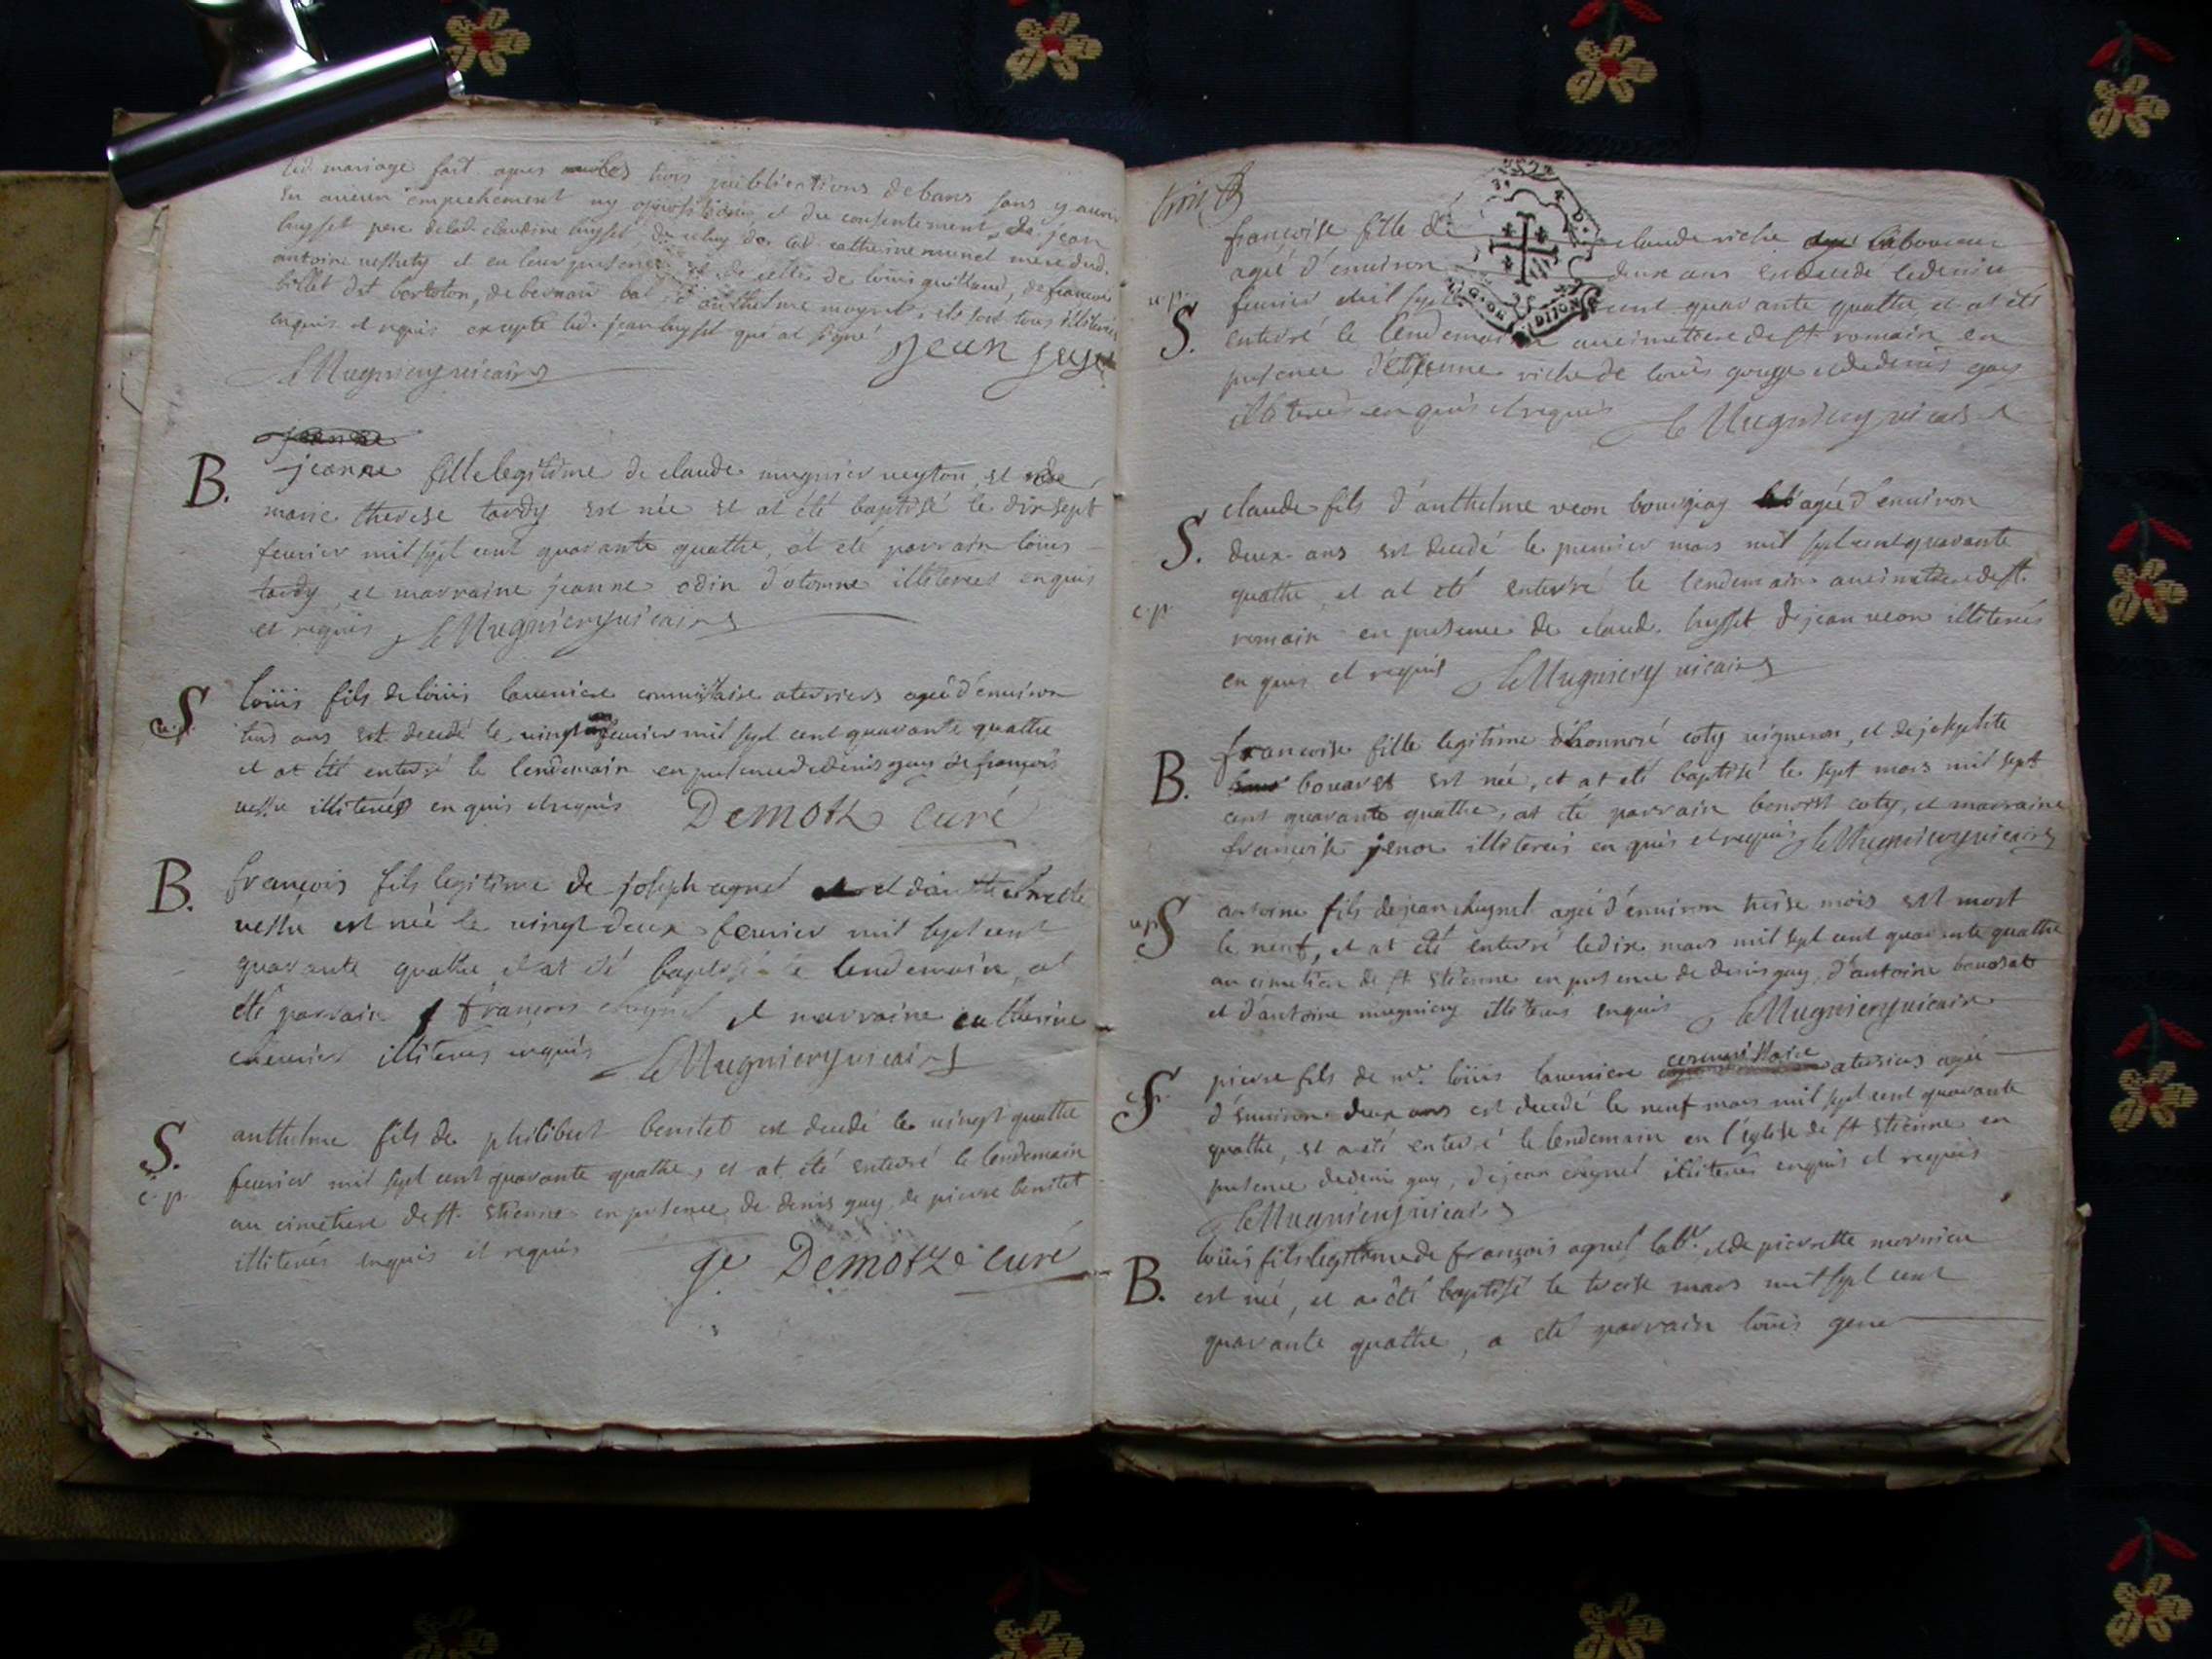 led mariage fait apres les trois publications de bans sans y avoir
eu aucun empechement ny opposition, et du consentement de jean
huysset pere de lad. claudine huysset, de celuy de lad catherine munet mere dud.
antoine et en leur presence et de celle de louis guillaud, de francois
billet dit bortoton, de bernard et d'anthelme moynet, ils sont tous illiterés
enquis et requis excepté led. jean huysset qui at signé
Jean
Mugniery vicaire
B.
jeanne
jeanne fille legitime de claude mugnier veyton, et de
marie therese tardy est née et at été baptisé le dix sept
fevrier mil sept cent quarante quattre, at eté parrain louis
tardy, et marraine jeanne odin d'otonne illiterés enquis
et requis Mugniery vicaire
S
u.p.
louis fils de louis laverniere commissaire aterriers ageé d'environ
trois ans est decedé le vingt fevrier mil sept cent quarante quattre
et at été enterré le lendemain en presence de denis guy de françois
vettu illiterés enquis et requis Demotz curé
B.
françois fils legitime de joseph agnel et d'anthelmette
vettu est né le vingt deux fevrier mil sept cent
quarante quattre et at été baptisé le lendemain, at
été parrain françois chuynel et marraine catherine
illiterés enquis Mugniery vicaire
S.
c. p.
anthelme fils de philibert benitet est decedé le vingt quattre
fevrier mil sept cent quarante quattre, et at été enterré le lendemain
au cimetiere de st. etienne en presence de denis guy, de pierre benitet
illiterés enquis et requis
ge Demotz curé
trois
DIJON
u.p.
S.
françoise fille de claude riche laboureur
ageé d'environ deux ans est decedé le dernier
fevrier mil sept cent quarante quattre, et at été
enterré le lendemain au cimetiere de st romain en
presence d'etienne riche de louis gouge et de denis guy
illiterés enquis et requis Mugniery vicaire
S.
c. p.
claude fils d'anthelme veon bourgiay ageé d'environ
deux ans est decedé le premier mars mil sept cent quarante
quattre, et at eté enterré le lendemain au cimetiere de st.
romain en presence de claude huysset de jean veon illiterés
enquis et requis Mugniery vicaire
B.
françoise fille legitime d'honnoré coty vigneron, et de josephte
bouvret est née, et at eté baptisé le sept mars mil sept
cent quarante quattre, at été parrain benoist coty, et marraine
françoise illiterés enquis et requis Mugniery vicaire
u.p.
S
antoine fils de jean chuynel ageé d'environ treise mois est mort
le neuf, et at été enterré le dix mars mil sept cent quarante quattre
au cimetiere de st etienne en presence de denis guy, d'antoine bouvrat
et d'antoine mugniery illiterés enquis Mugniery vicaire
S.
pierre fils de mr. louis laverniere commissaire aterriers ageé
d'environ deux ans est decedé le neuf mars mil sept cent quarante
quattre, et a eté enterré le lendemain en l'église de st etienne en
presence de denis guy, de jean chuynel illiterés enquis et requis
Mugniery vicaire
B.
louis fils legitime de françois agnel labr. et de pierrette mornieu
est né, et a été baptisé le treise mars mil sept cent
quarante quattre, a eté parrain louis gene